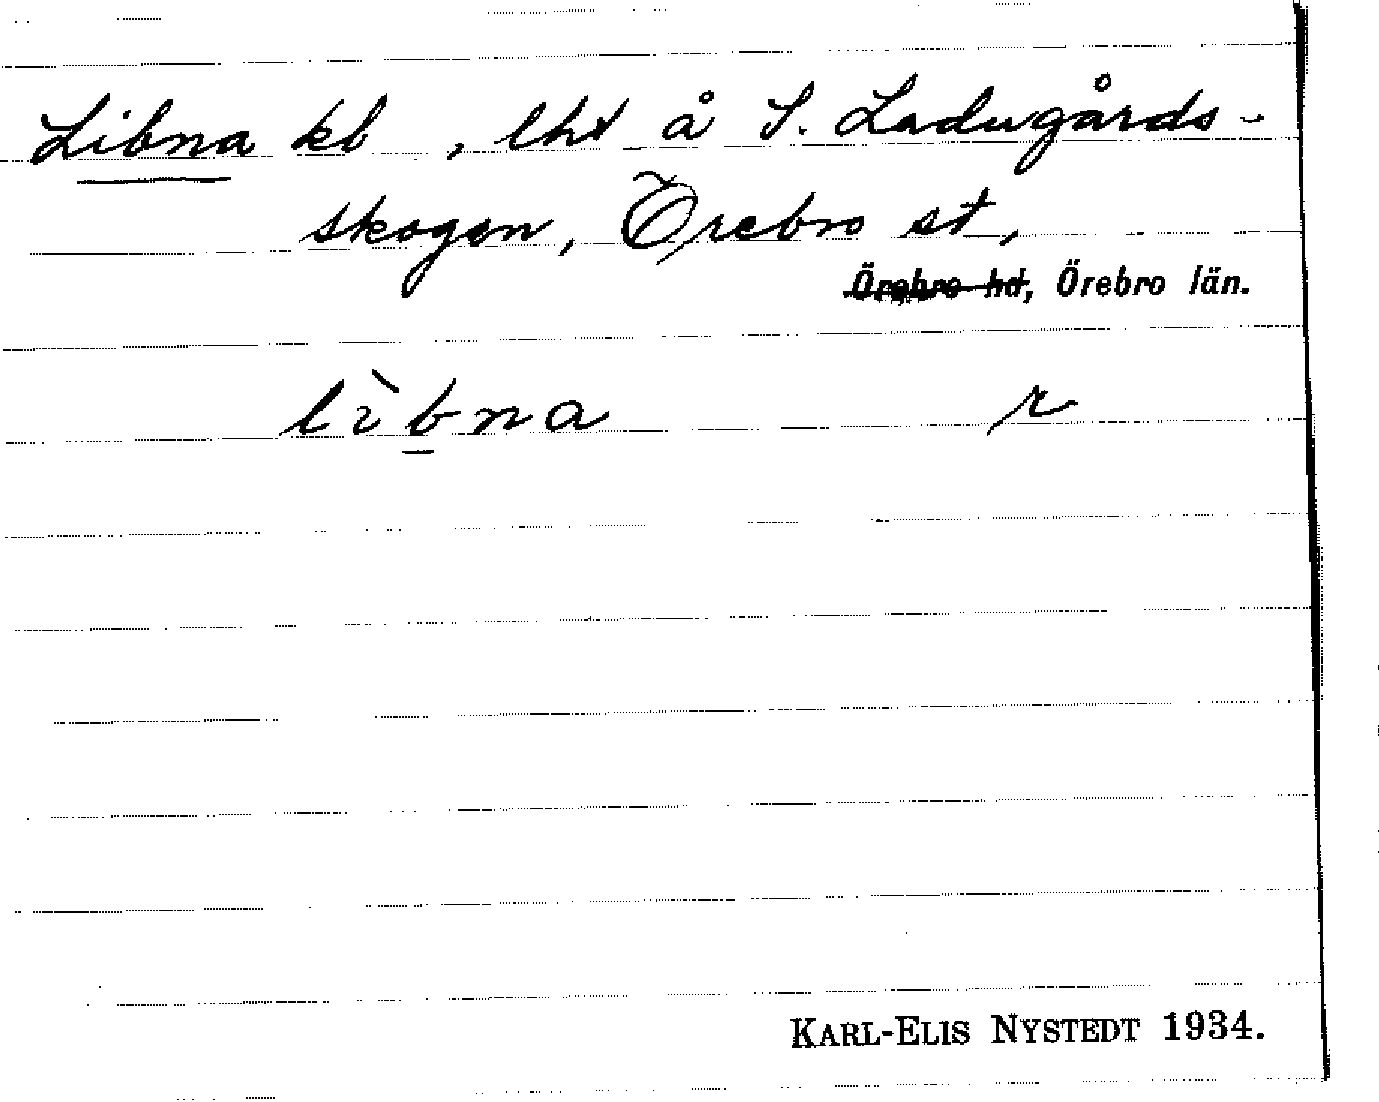 Libna kb , lht å S. Ladugårds-
skogen, Örebro st,
Örebro hd, Örebro län.
lìbna r
KARL-ELIS NYSTEDT 1934.